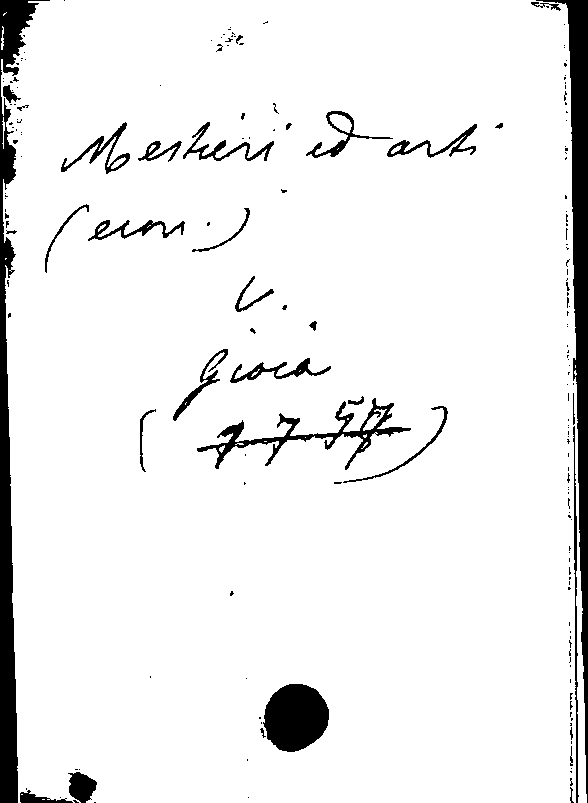 Mestieri ed arti
(econ.)
v.
Gioia
(7757)